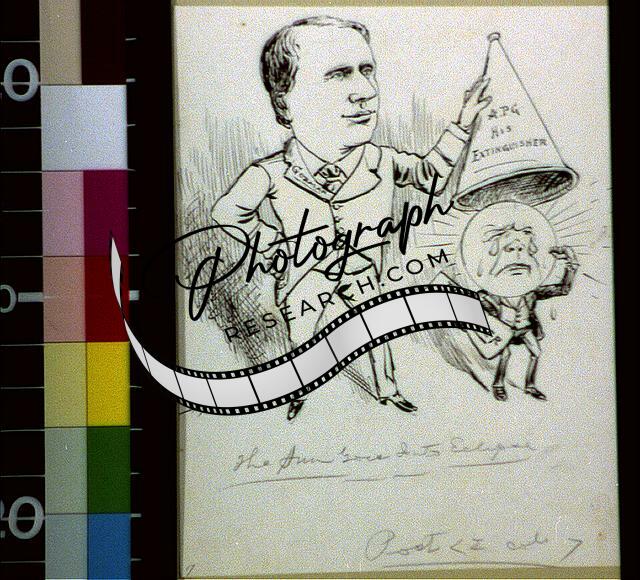 0
A.P.G
HIS
EXTINGUISHER
Photograph
RESEARCH.COM
0
The Sun Goes Into Eclipse
20
Post